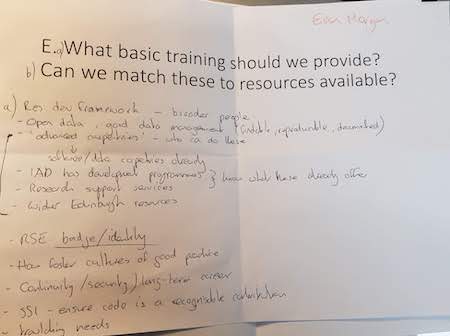 Evan Morgan
E.a) What basic training should we provide?
b) Can we match these to resources available?
a) Res dev framework – broader people.
- Open data, good data management (findable, reproducible, documented)
- 'advanced competencies' - who can do these
software/data capabilities already
- IAD has development programmes } know what these already offer
- Research support services
- Wider Edinburgh resources
- RSE badge/identity
- How foster cultures of good practice
- Continuity/security/long-term career
- SSI - ensure code is a recognisable contribution
- training needs